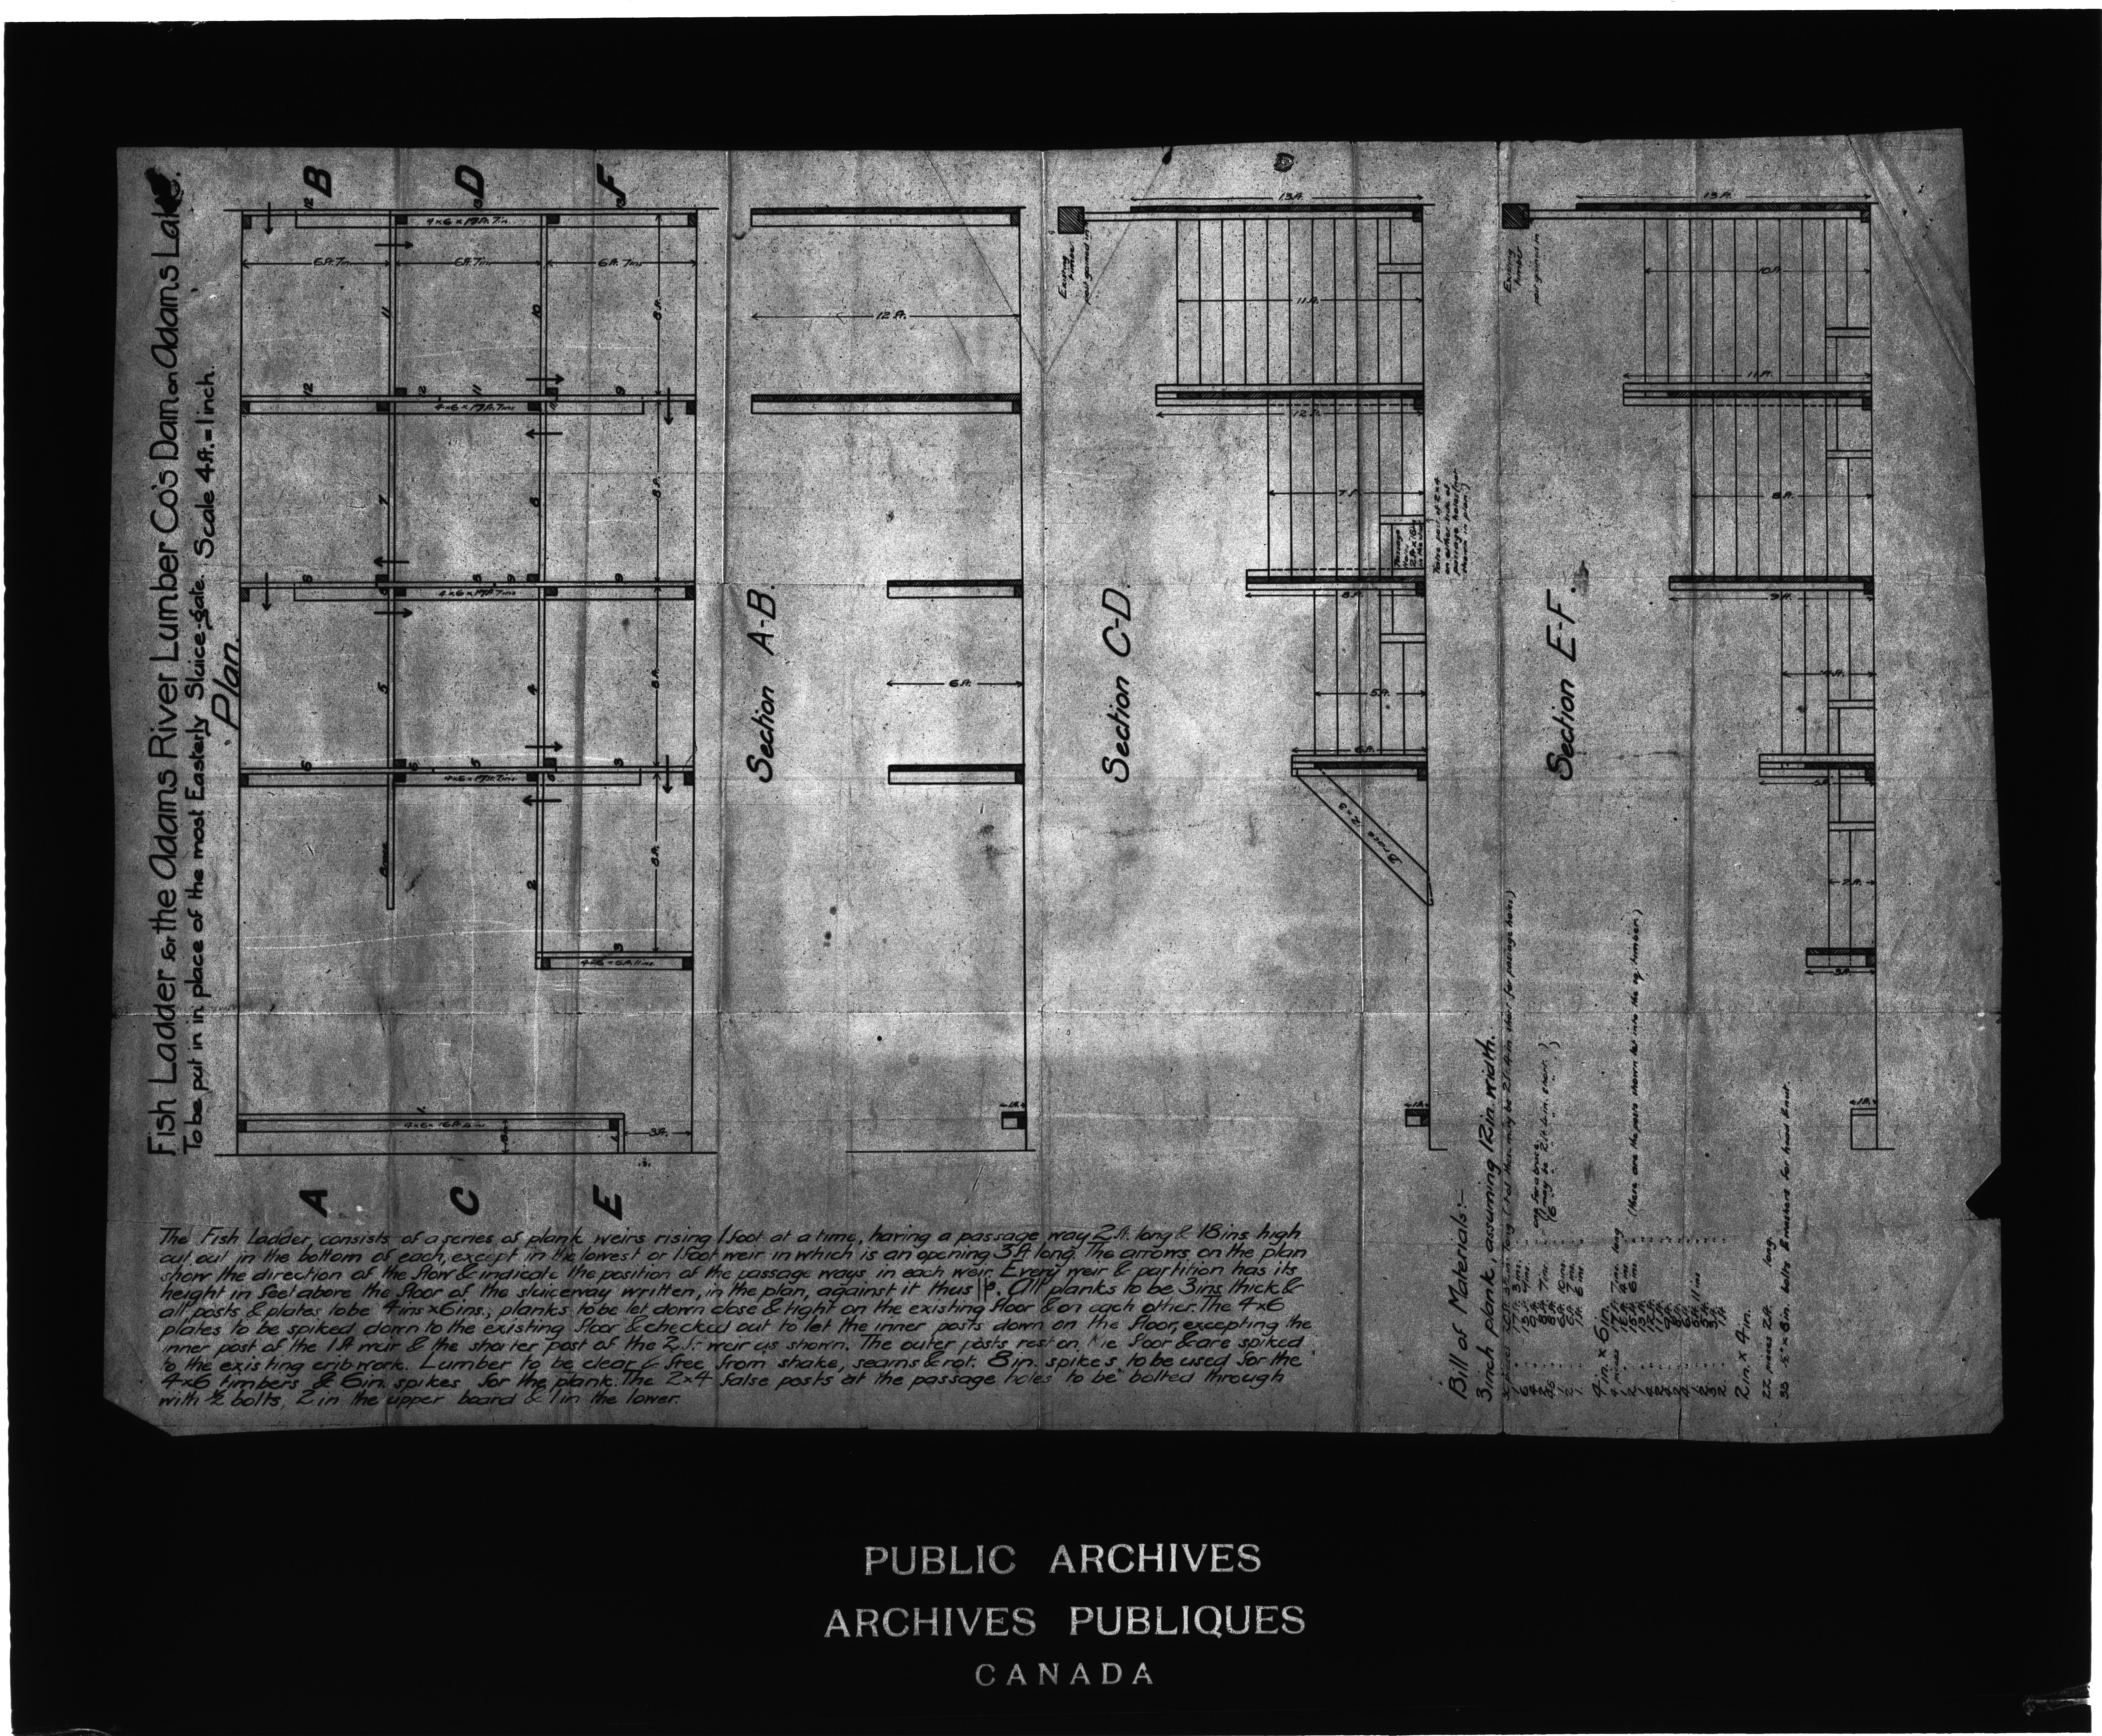 Fish Ladder for the Adams River Lumber Co's Dam on Adams Lake.
To be put in in place of the most Easterly Sluice-gate. Scale 4ft. = 1 inch.
Plan.
B
D
F
12
13
4x6 x 19ft. 7in.
6ft. 7in.
6ft. 7ins
6ft. 7ins
11
10
8ft.
12
12
11
9
4x6 x 19ft. 7ins
7
8
8ft.
8
8
9
9
4x6 x 19ft. 7ins
5
4
8ft.
6
6
5
3
4x6 x 19ft. 7ins
Brace
2
8ft.
3
4x6 x 6ft. 11ins.
1.
3ft.
A
C
E
Section A-B.
12 ft.
6 ft.
1ft.
Section C-D.
Existing timber
post gained in
13ft.
11ft.
12 ft.
7ft.
Passage way 2ft. x 18ins
False post of 2x4 on either side of passage holes (not shown in plan.)
8ft.
5ft.
6ft.
Brace 12 x 3
1ft.
Section E-F.
Existing timber
post gained in
13ft.
10ft.
11 ft.
8ft.
9ft.
4ft.
5ft.
2ft.
3ft.
1ft.
The Fish Ladder, consists of a series of plank weirs rising 1 foot at a time, having a passage way 2 ft. long & 18 ins high
cut out in the bottom of each, except in the lowest or 1 foot weir in which is an opening 3 ft. long. The arrows on the plan
show the direction of the flow & indicate the position of the passage ways in each weir. Every weir & partition has its
height in feet above the floor of the sluiceway written, in the plan, against it thus. All planks to be 3ins thick &
all posts & plates to be 4ins x 6ins; planks to be let down close & tight on the existing floor & on each other. The 4x6
plates to be spiked down to the existing floor & checked out to let the inner posts down on the floor, excepting the
inner post of the 1 ft weir & the shorter post of the 2 ft weir as shown. The outer posts rest on the floor & are spiked
to the existing cribwork. Lumber to be clear & free from shake, seams & rot. 8in. spikes, to be used for the
4x6 timbers & 6 in. spikes for the plank. The 2x4 false posts at the passage holes to be bolted through
with ½ bolts, 2 in the upper board & 1 in the lower.
Bill of Materials:-
3 inch plank, assuming 12in. width.
one for a brace
4 in. x 6 in.
2 in. x 4 in.
22 pieces 2ft. long.
33 ½" x 8in. bolts & washers for head & nut.
PUBLIC ARCHIVES
ARCHIVES PUBLIQUES
CANADA